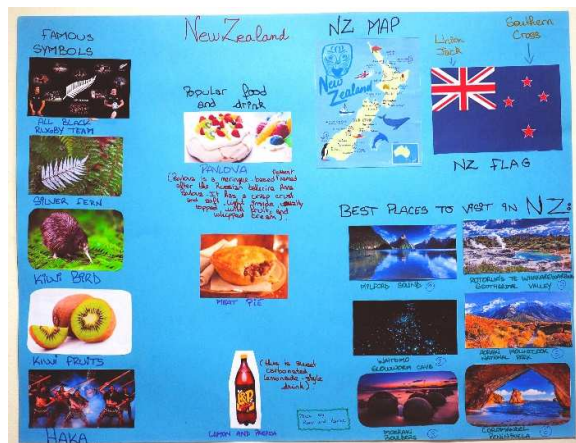 FAMOUS
SYMBOLS
ALL BLACK
RUGBY TEAM
SILVER FERN
KIWI BIRD
KIWI FRUITS
HAKA
New Zealand
Popular food
and drink
PAVLOVA
(Pavlova is a meringue-based dessert named
after the Russian ballerina Ana
Pavlova. It has a crisp crust
and soft light inside, usually
topped with fruit and
whipped cream).
MEAT PIE
L&P
(this is sweet
carbonated
lemonade-style
drink)
LEMON AND PAEROA
NZ MAP
New
Zealand
Union
Jack
Southern
Cross
NZ FLAG
BEST PLACES TO VISIT IN NZ:
MILFORD SOUND
GEOTHERMAL VALLEY
WAITOMO
GLOWWORM CAVE
NATIONAL PARK
MOERAKI
BOULDERS
COROMANDEL
PENINSULA